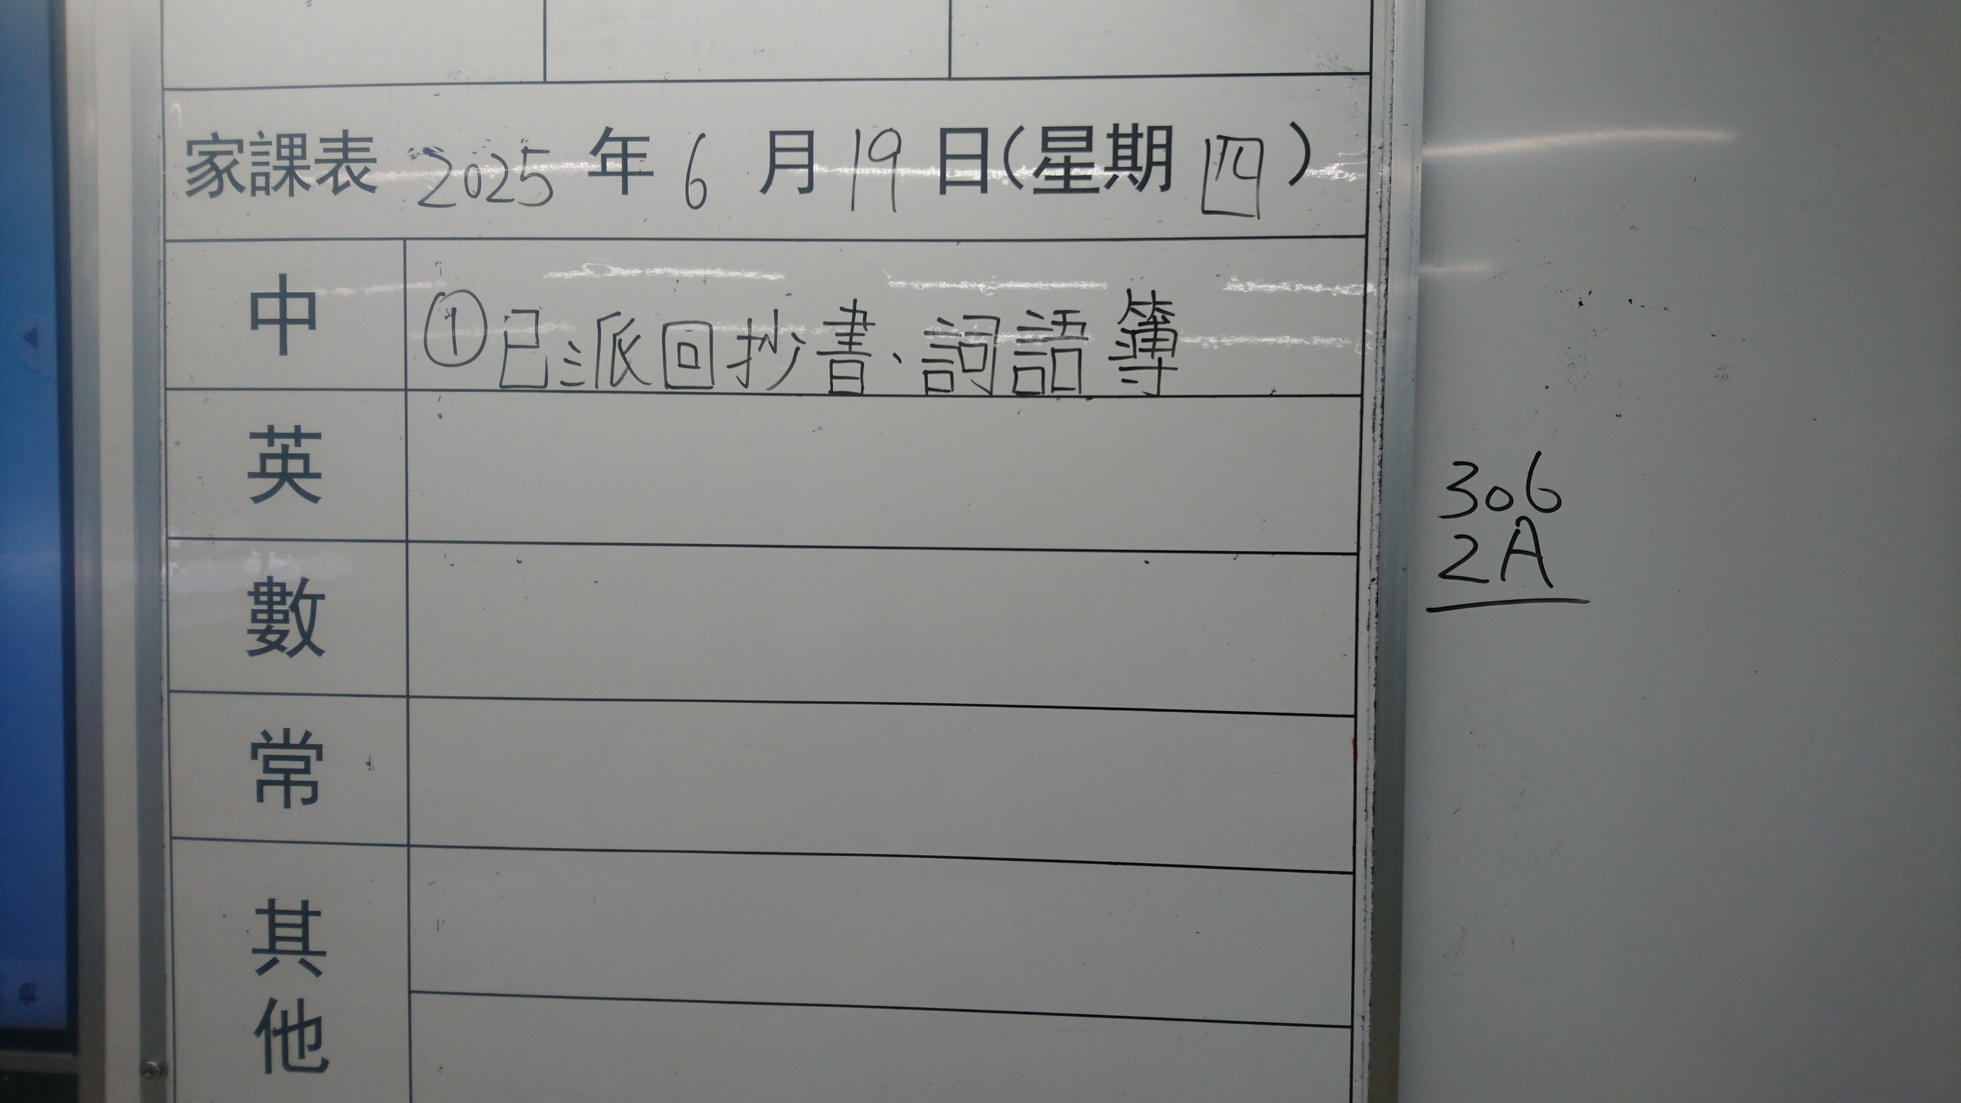 家課表 2025 年 6 月 19 日(星期 四 )
中 ①已派回抄書、詞語簿
英
數
常
其他
306
2A